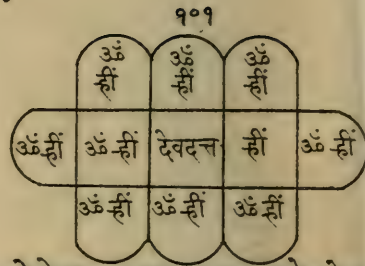 १०१
ॐ ह्रीं ॐ ह्रीं ॐ ह्रीं
ॐ ह्रीं ॐ ह्रीं देवदत्त ह्रीं ॐ ह्रीं
ॐ ह्रीं ॐ ह्रीं ॐ ह्रीं